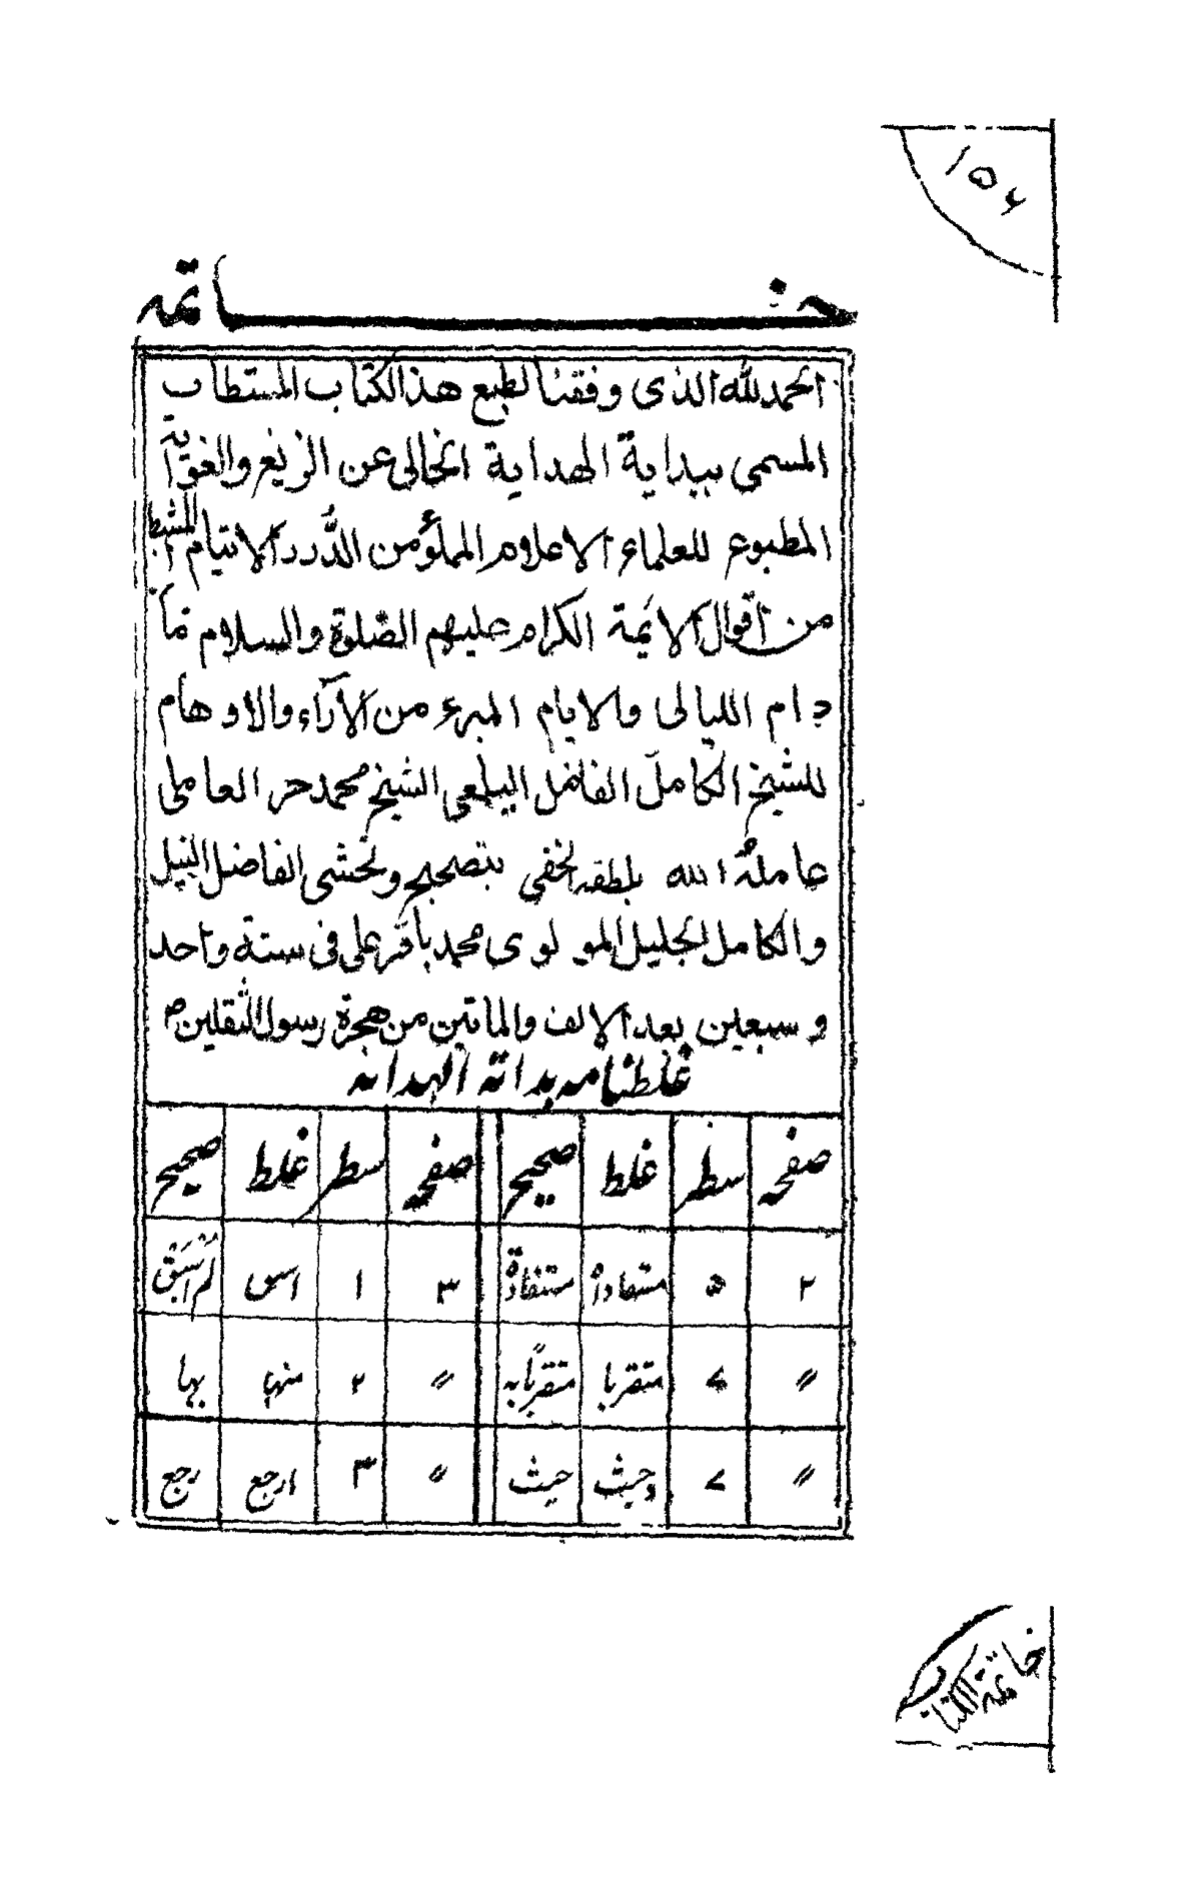 ١٥٦
خاتمه
الحمد لله الذى وفقنا لطبع هذا الكتاب المستطاب
المسمى ببداية الهداية الخالى عن الزيغ والغواية
المطبوع للعلماء الاعلام المملؤ من الدُّرر الايتام
من اقوال الائمة الكرام عليهم الصلوة والسلام ما
دام الليالى والايام المبرء من الآراء والاوهام
للشيخ الكامل الفاضل اليلمعى الشيخ محمد حر العاملى
عامله الله بلطفه الخفي بتصحيح وتحشى الفاضل النبيل
والكامل الجليل المولوى محمد باقر على فى ستة واحد
وسبعين بعد الالف والماتين من هجرة رسول الثقلين ص
غلطنامه بداية الهداية
صفحه سطر غلط صحيح صفحه سطر غلط صحيح
٢ ٥ مستفاداة مستفادة ٣ ١ اسبق لم اسبق
〃 ٧ متقربا متقربًا به 〃 ٢ منها بها
〃 ٧ وحيث حيث 〃 ٣ ارجع رجع
خاتمة الكتاب